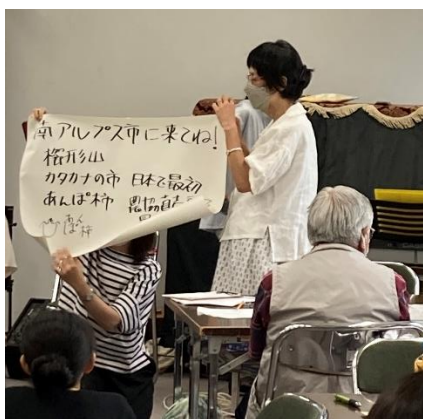 南アルプス市に来てね!
櫛形山
カタカナの市 日本で最初
あんぽ柿 農協直売
あんぽ柿